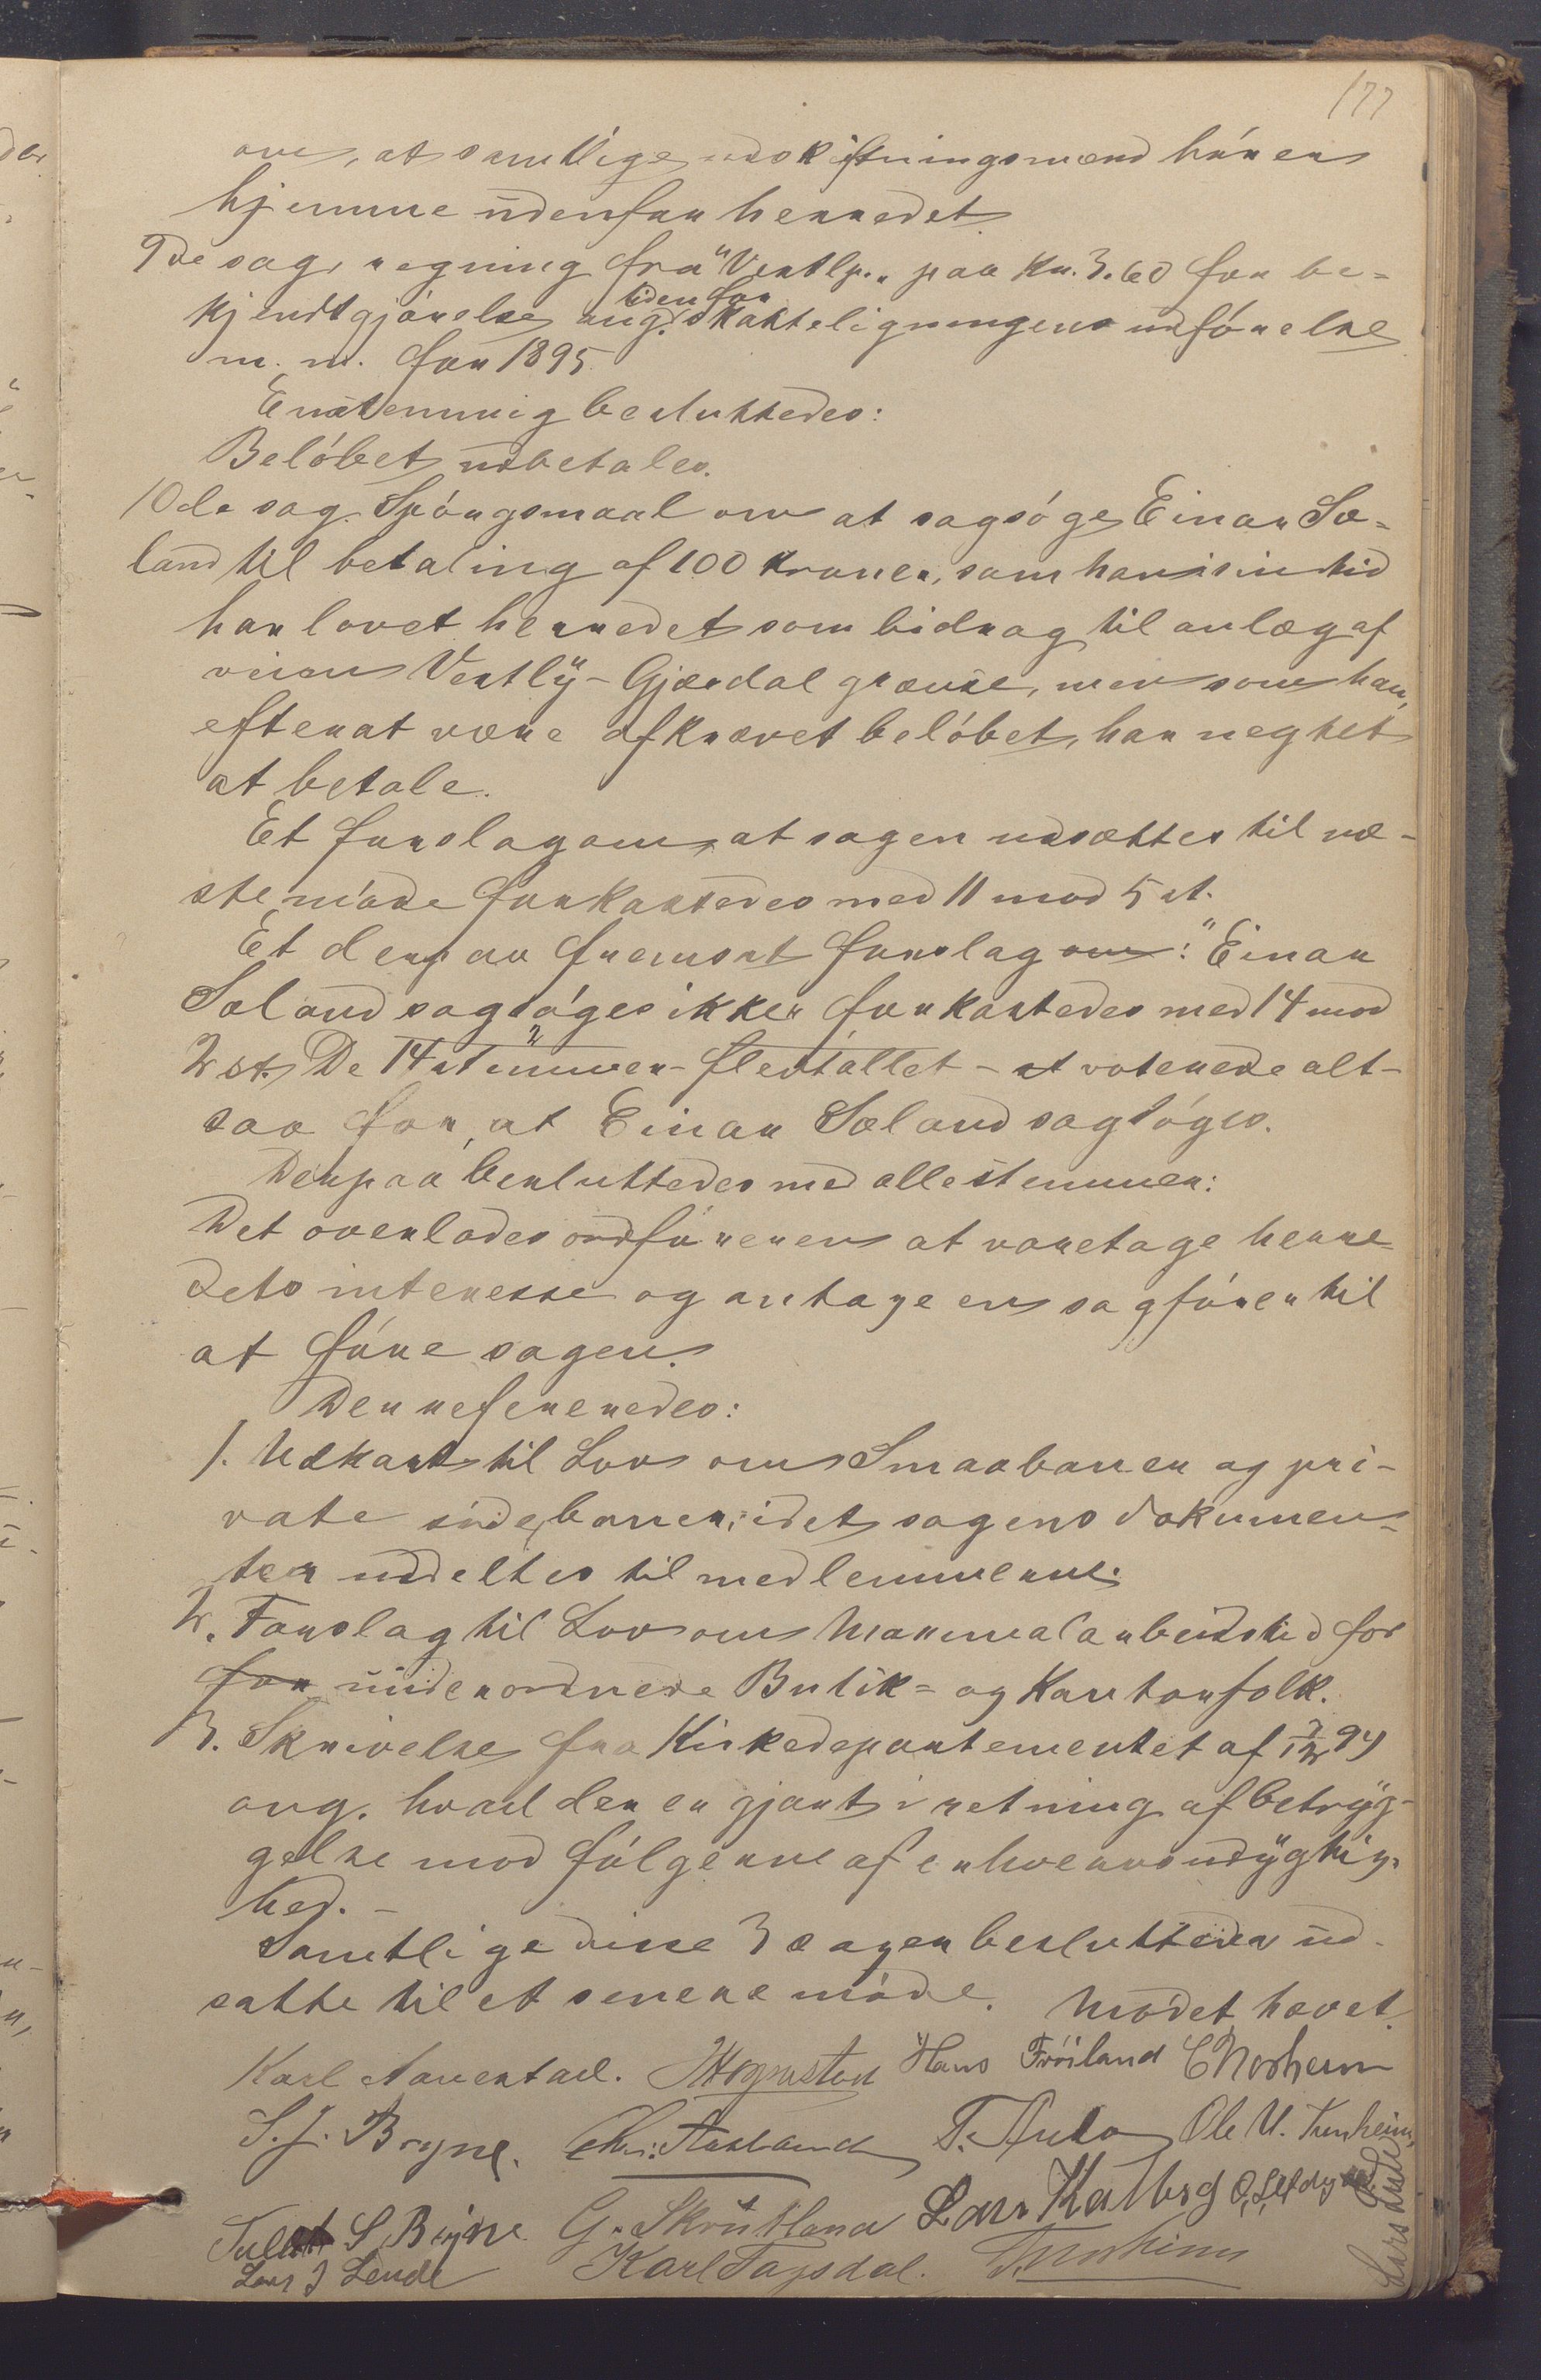 177
om, at samtlige udskiftningsmænd hører
hjemme udenfor herredet.
9de sag, regning fra "Vestly" paa Kr. 3.60 for be-
kjendtgjørelse ang. tiden for skatteligningens udførelse
m. m. for 1895.
Enstemmig besluttedes:
Beløbet udbetales.
10de sag. Spørgsmaal om at sagsøge Einar Sæ-
land til betaling af 100 kroner, som han i sin tid
har lovet herredet som bidrag til anlæg af
veien Vestly - Gjesdal grænse, men som han,
efter at være afkrævet beløbet, har negtet
at betale.
Et forslag om, at sagen udsættes til næ-
ste møde forkastedes med 11 mod 5 st.
Et derpaa fremsat forslag om: "Einar
Sæland sagsøges ikke" forkastedes med 14 mod
2 st. De 14 stemmer - flertallet - voterede alt-
saa for, at Einar Sæland sagsøges.
Derpaa besluttedes med alle stemmer:
Det overlades ordføreren at varetage herre-
dets interesse og antage en sagfører til
at føre sagen.
Der refereredes:
1. Udkast til Lov om Smaabaner og pri-
vate sidebaner, idet sagens dokumen-
ter uddeltes til medlemmerne.
2. Forslag til Lov om Maximalarbeidstid for
for underordnede Butik- og Kontorfolk.
3. Skrivelse fra Kirkedepartementet af 7/12 94
ang. hvad der er gjort i retning af betryg-
gelse mod følgerne af erhvervsudygtig-
hed. -
Samtlige disse 3 sager besluttedes ud-
satte til et senere møde. Mødet hævet.
Karl Aarestad. Hans Frøiland
S. J. Bryne. Chr. Aasland Ole U. Treheim,
S Bryne G. Skrutland Lars Kalberg
Lars J Lende Karl Tagsdal.
Lars Lende